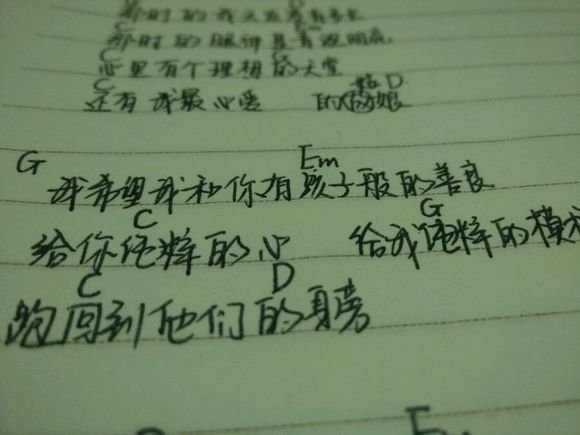 那时的我
C
那时的眼神是
C G
心里有个理想的天堂
C 姑 D
还有我最心爱 的娘
G Em
我希望我和你有孩子般的善良
C G
给你纯粹的心 给我纯粹的模
C D
跑回到他们的身旁
Em